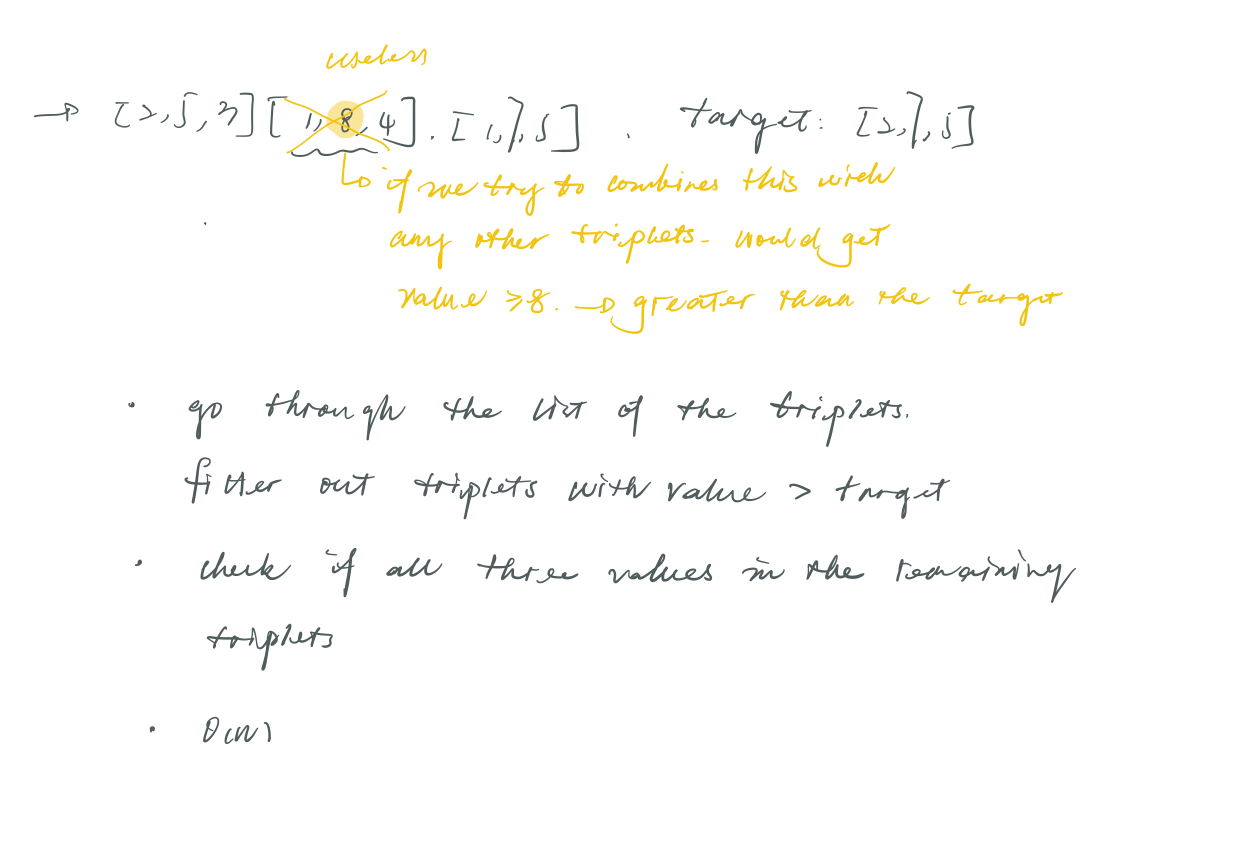 useless
→ [2,5,3] [1,8,4]. [1,7,5]. target: [2,7,5]
↳ if we try to combines this with
any other triplets. would get
value ≥8. → greater than the target
· go through the list of the triplets.
filter out triplets with value > target
· check if all three values in the remaining
triplets
· O(n)